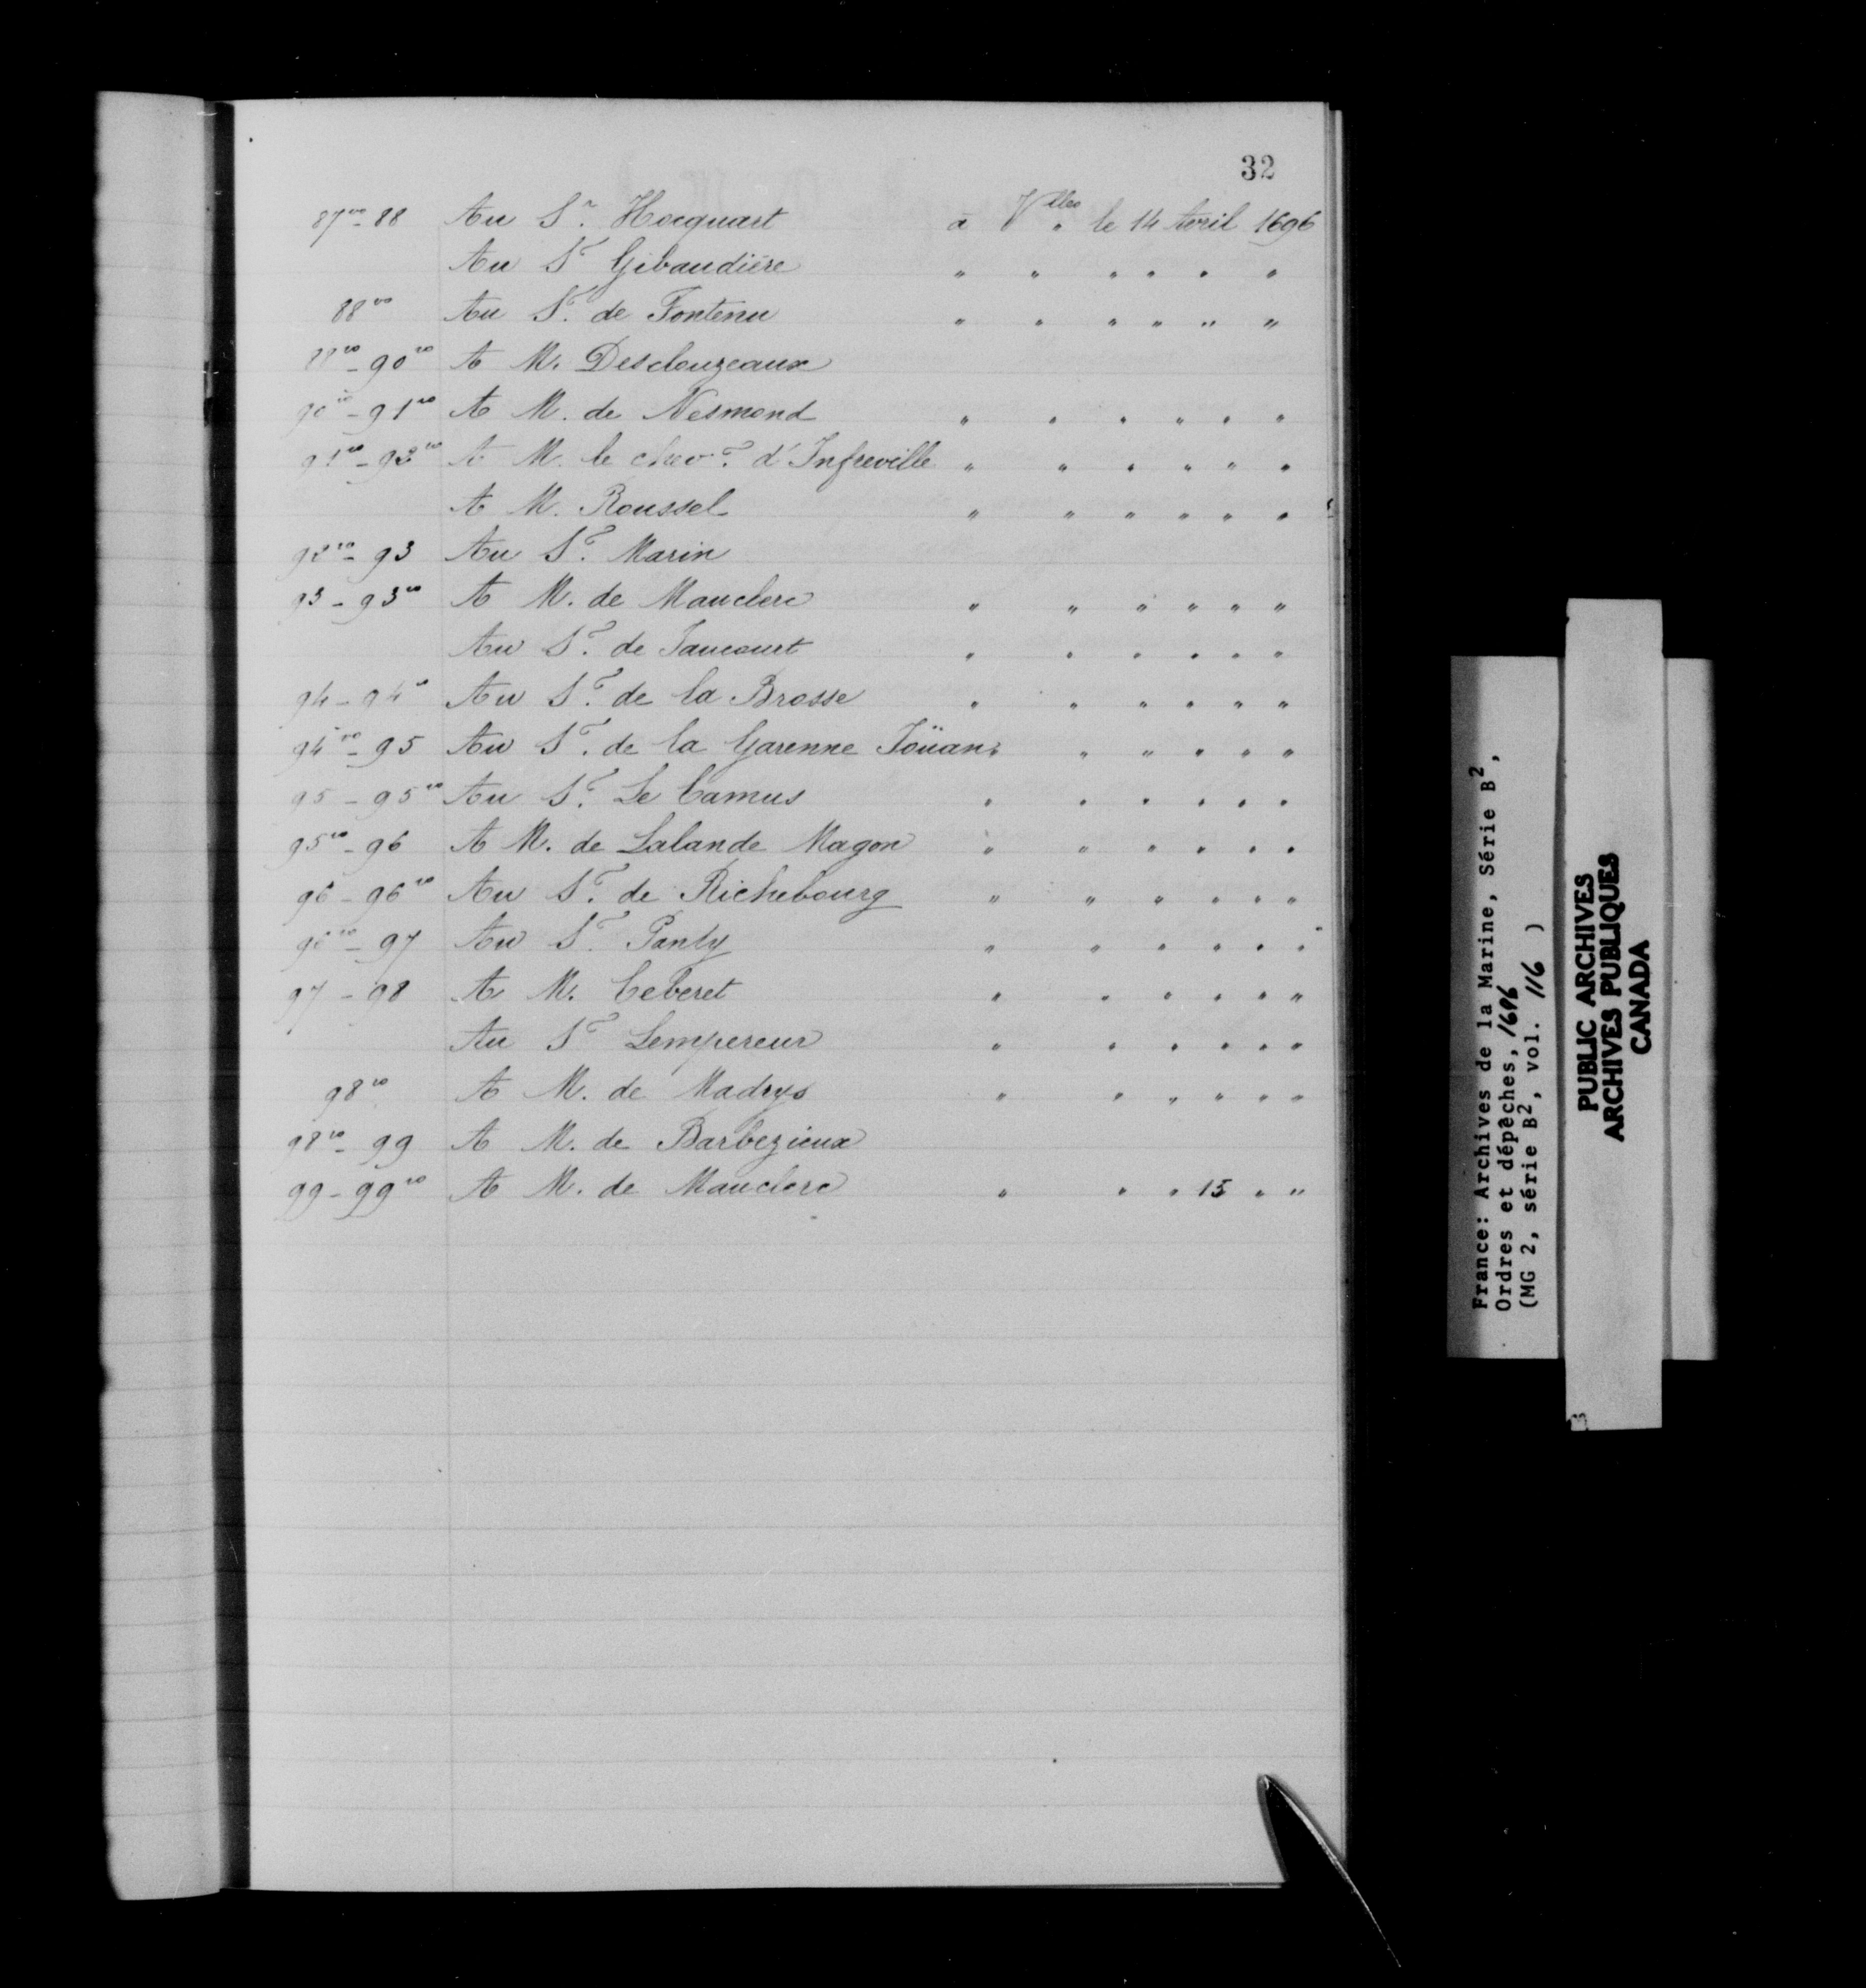 32
87vo-88 Au Sr. Hocquart à Vlles le 14 Avril 1696
Au Sr Gibaudière " " " " " "
88vo Au Sr. de Fontenu " " " " " "
88vo-90vo A M. Desclouzeaux
90vo-91vo A M. de Nesmond " " " " " "
91vo-92vo A M. le chevr. d'Infreville " " " " " "
A M. Roussel " " " " " "
92vo-93 Au Sr. Marin
93-93vo A M. de Mauclerc " " " " " "
Au Sr. de Jaucourt " " " " " "
94-94vo Au Sr. de la Brosse " " " " " "
94vo-95 Au Sr. de la Garenne Joüan " " " " " "
95-95vo Au Sr. Le Camus " " " " " "
95vo-96 A M. de Lalande Magon " " " " " "
96-96vo Au Sr. de Richebourg " " " " " "
96vo-97 Au Sr. Panty " " " " " "
97-98 A M. Ceberet " " " " " "
Au Sr Lempereur " " " " " "
98vo A M. de Madrys " " " " " "
98vo-99 A M. de Barbezieux
99-99vo A M. de Mauclerc " " " 15 " "
France: Archives de la Marine, Série B2,
Ordres et dépêches, 1696
(MG 2, série B2, vol. 116 )
PUBLIC ARCHIVES
ARCHIVES PUBLIQUES
CANADA